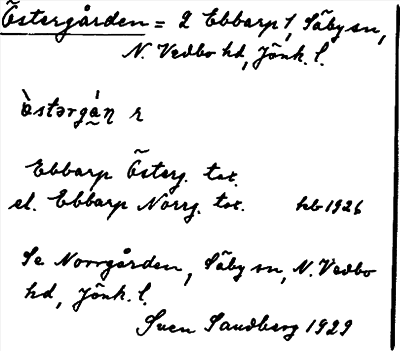 Östergården = 2 Ebbarp 1, Säby sn,
N. Vedbo hd, Jönk. l.
òstərgá̰ṇ r
Ebbarp Österg. tot.
el. Ebbarp Norrg. tot. hb 1926
Se Norrgården, Säby sn, N. Vedbo
hd, Jönk. l.
Sven Sandberg 1929